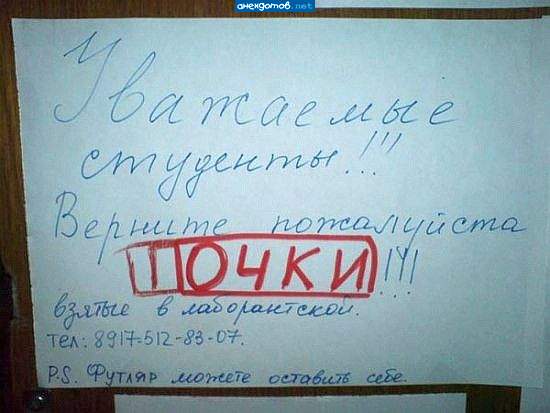 анекдотов.net
Уважаемые
студенты!!!
Верните пожалуйста
ТОЧКИ!!!
взятые в лаборантской.
тел: 8917-512-83-07.
P.S. Футляр можете оставить себе.